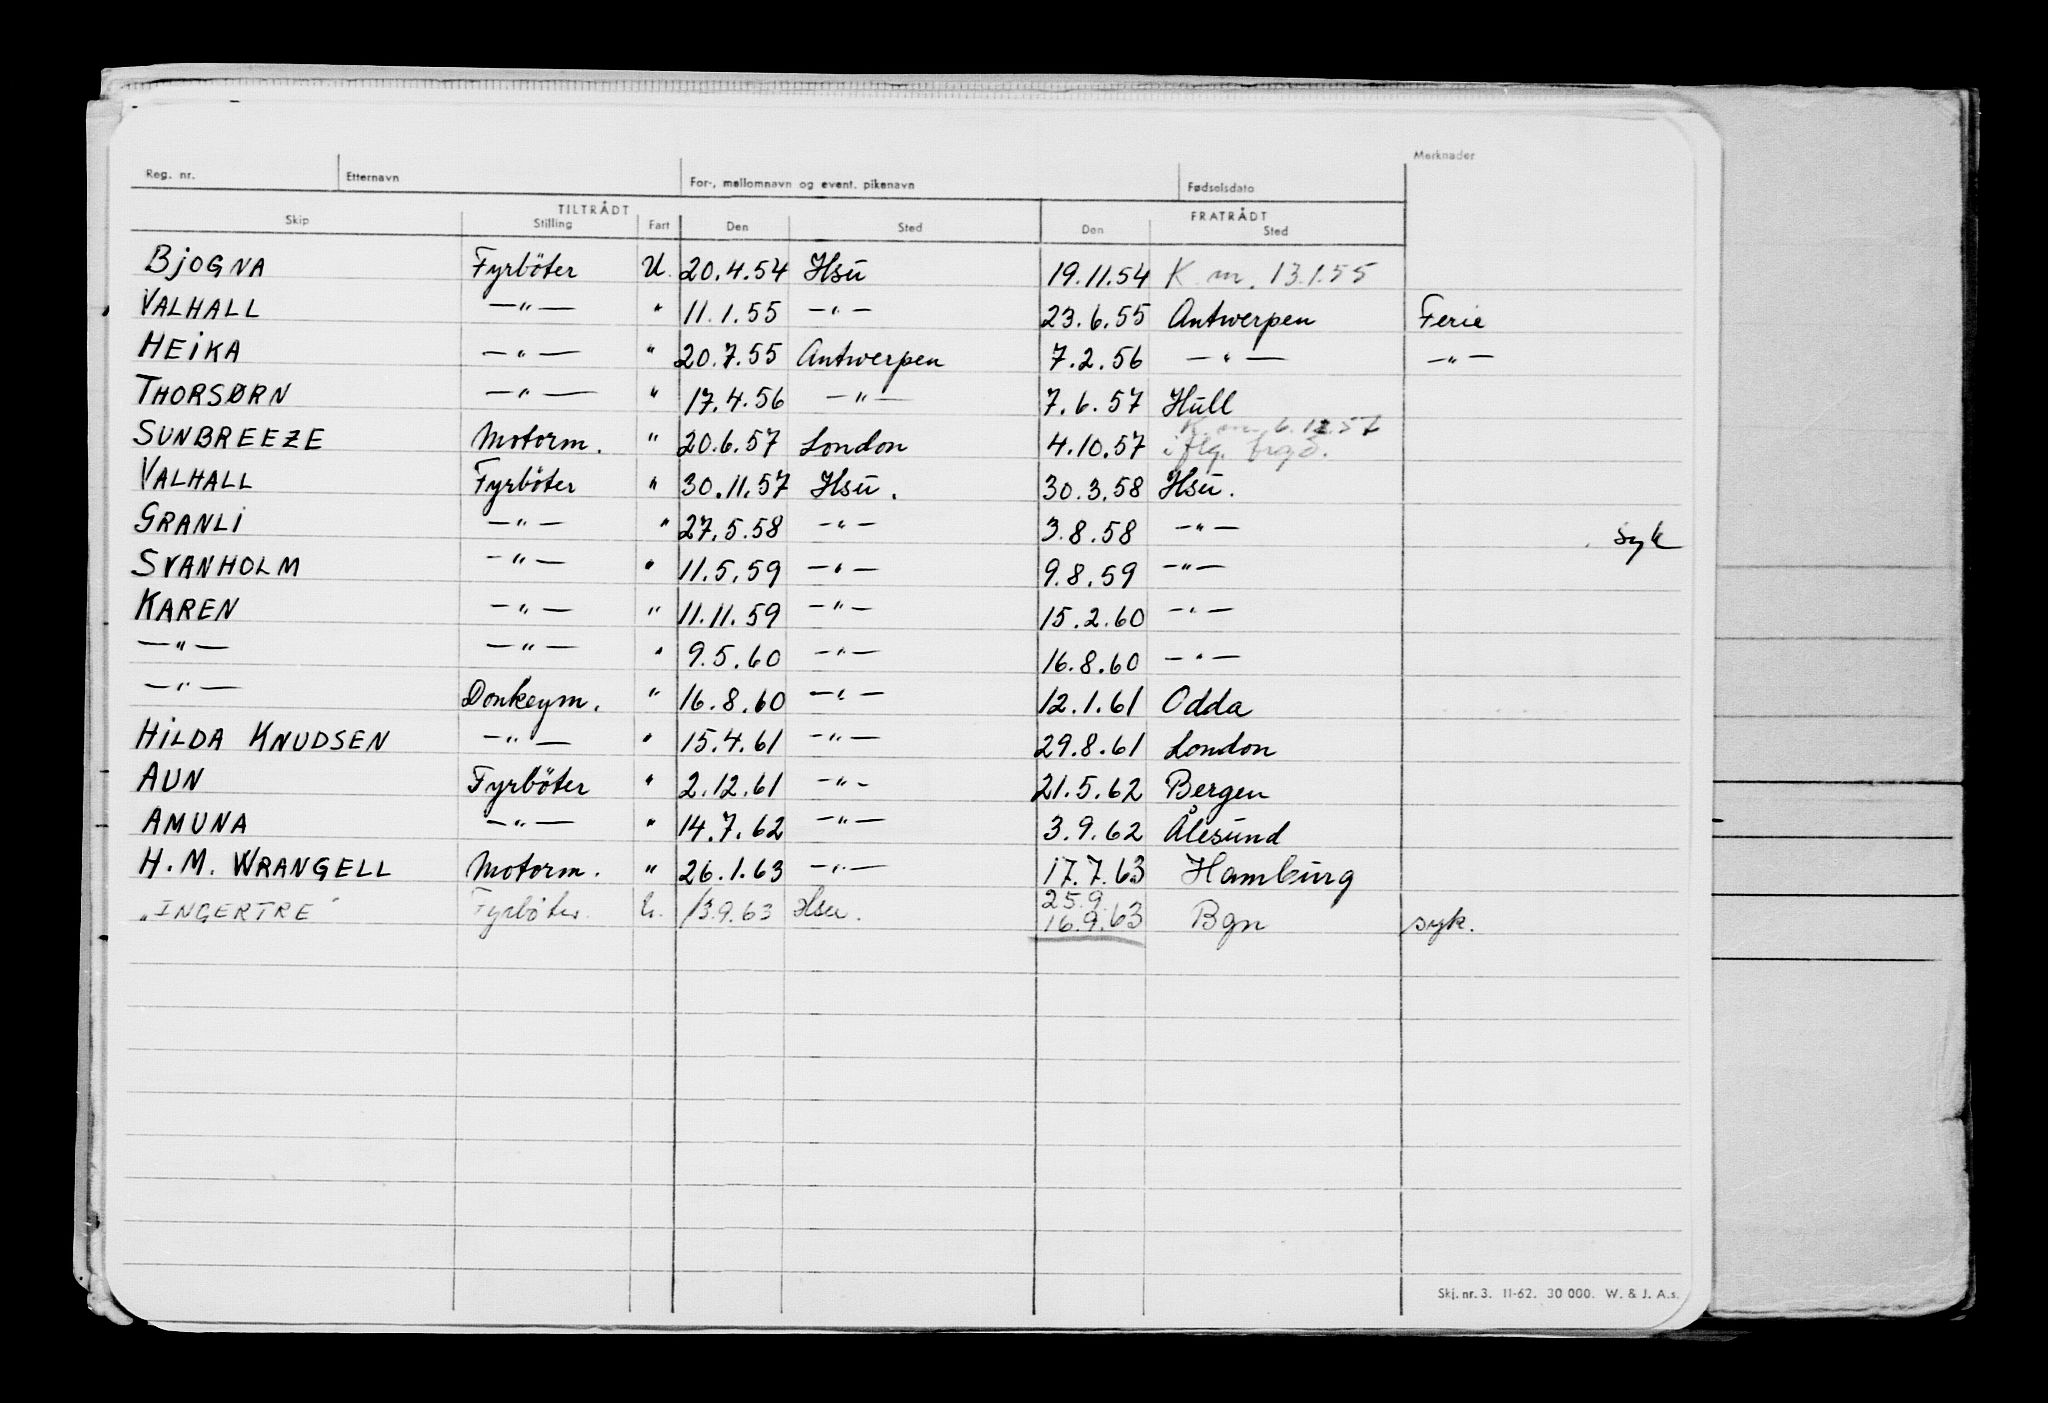 Merknader
Reg. nr. Etternavn For-, mellomnavn og event. pikenavn Fødselsdato
TILTRÅDT FRATRÅDT
Skip Stilling Fart Den Sted Den Sted
BJOGNA Fyrböter U. 20.4.54 Hsu 19.11.54 K.m. 13.1.55
VALHALL —"— " 11.1.55 —"— 23.6.55 Antwerpen Ferie
HEIKA —"— " 20.7.55 Antwerpen 7.2.56 —"— —"—
THORSØRN —"— " 17.4.56 —"— 7.6.57 Hull
K.m. 6.12.57
SUNBREEZE Motorm. " 20.6.57 London 4.10.57 iflg.
VALHALL Fyrböter " 30.11.57 Hsu. 30.3.58 Hsu.
GRANLI —"— " 27.5.58 —"— 3.8.58 —"— syk
SVANHOLM —"— " 11.5.59 —"— 9.8.59 —"—
KAREN —"— " 11.11.59 —"— 15.2.60 —"—
—"— —"— " 9.5.60 —"— 16.8.60 —"—
—"— Donkeym. " 16.8.60 —"— 12.1.61 Odda
HILDA KNUDSEN —"— " 15.4.61 —"— 29.8.61 London
AUN Fyrböter " 2.12.61 —"— 21.5.62 Bergen
AMUNA —"— " 14.7.62 —"— 3.9.62 Ålesund
H.M. WRANGELL Motorm. " 26.1.63 —"— 17.7.63 Hamburg
25.9.
"INGERTRE" Fyrböter. U. 13.9.63 Hsu. 16.9.63 Bgn syk.
Skj. nr. 3. 11-62. 30 000. W. & J. A.s.